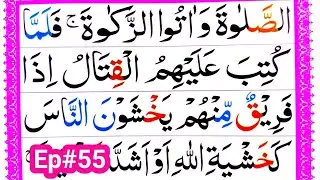 الصَّلٰوةَ وَاٰتُوا الزَّكٰوةَ ۚ فَلَمَّا
كُتِبَ عَلَيْهِمُ الْقِتَالُ اِذَا
فَرِيْقٌ مِّنْهُمْ يَخْشَوْنَ النَّاسَ
كَخَشْيَةِ اللّٰهِ اَوْ اَشَدَّ
Ep#55